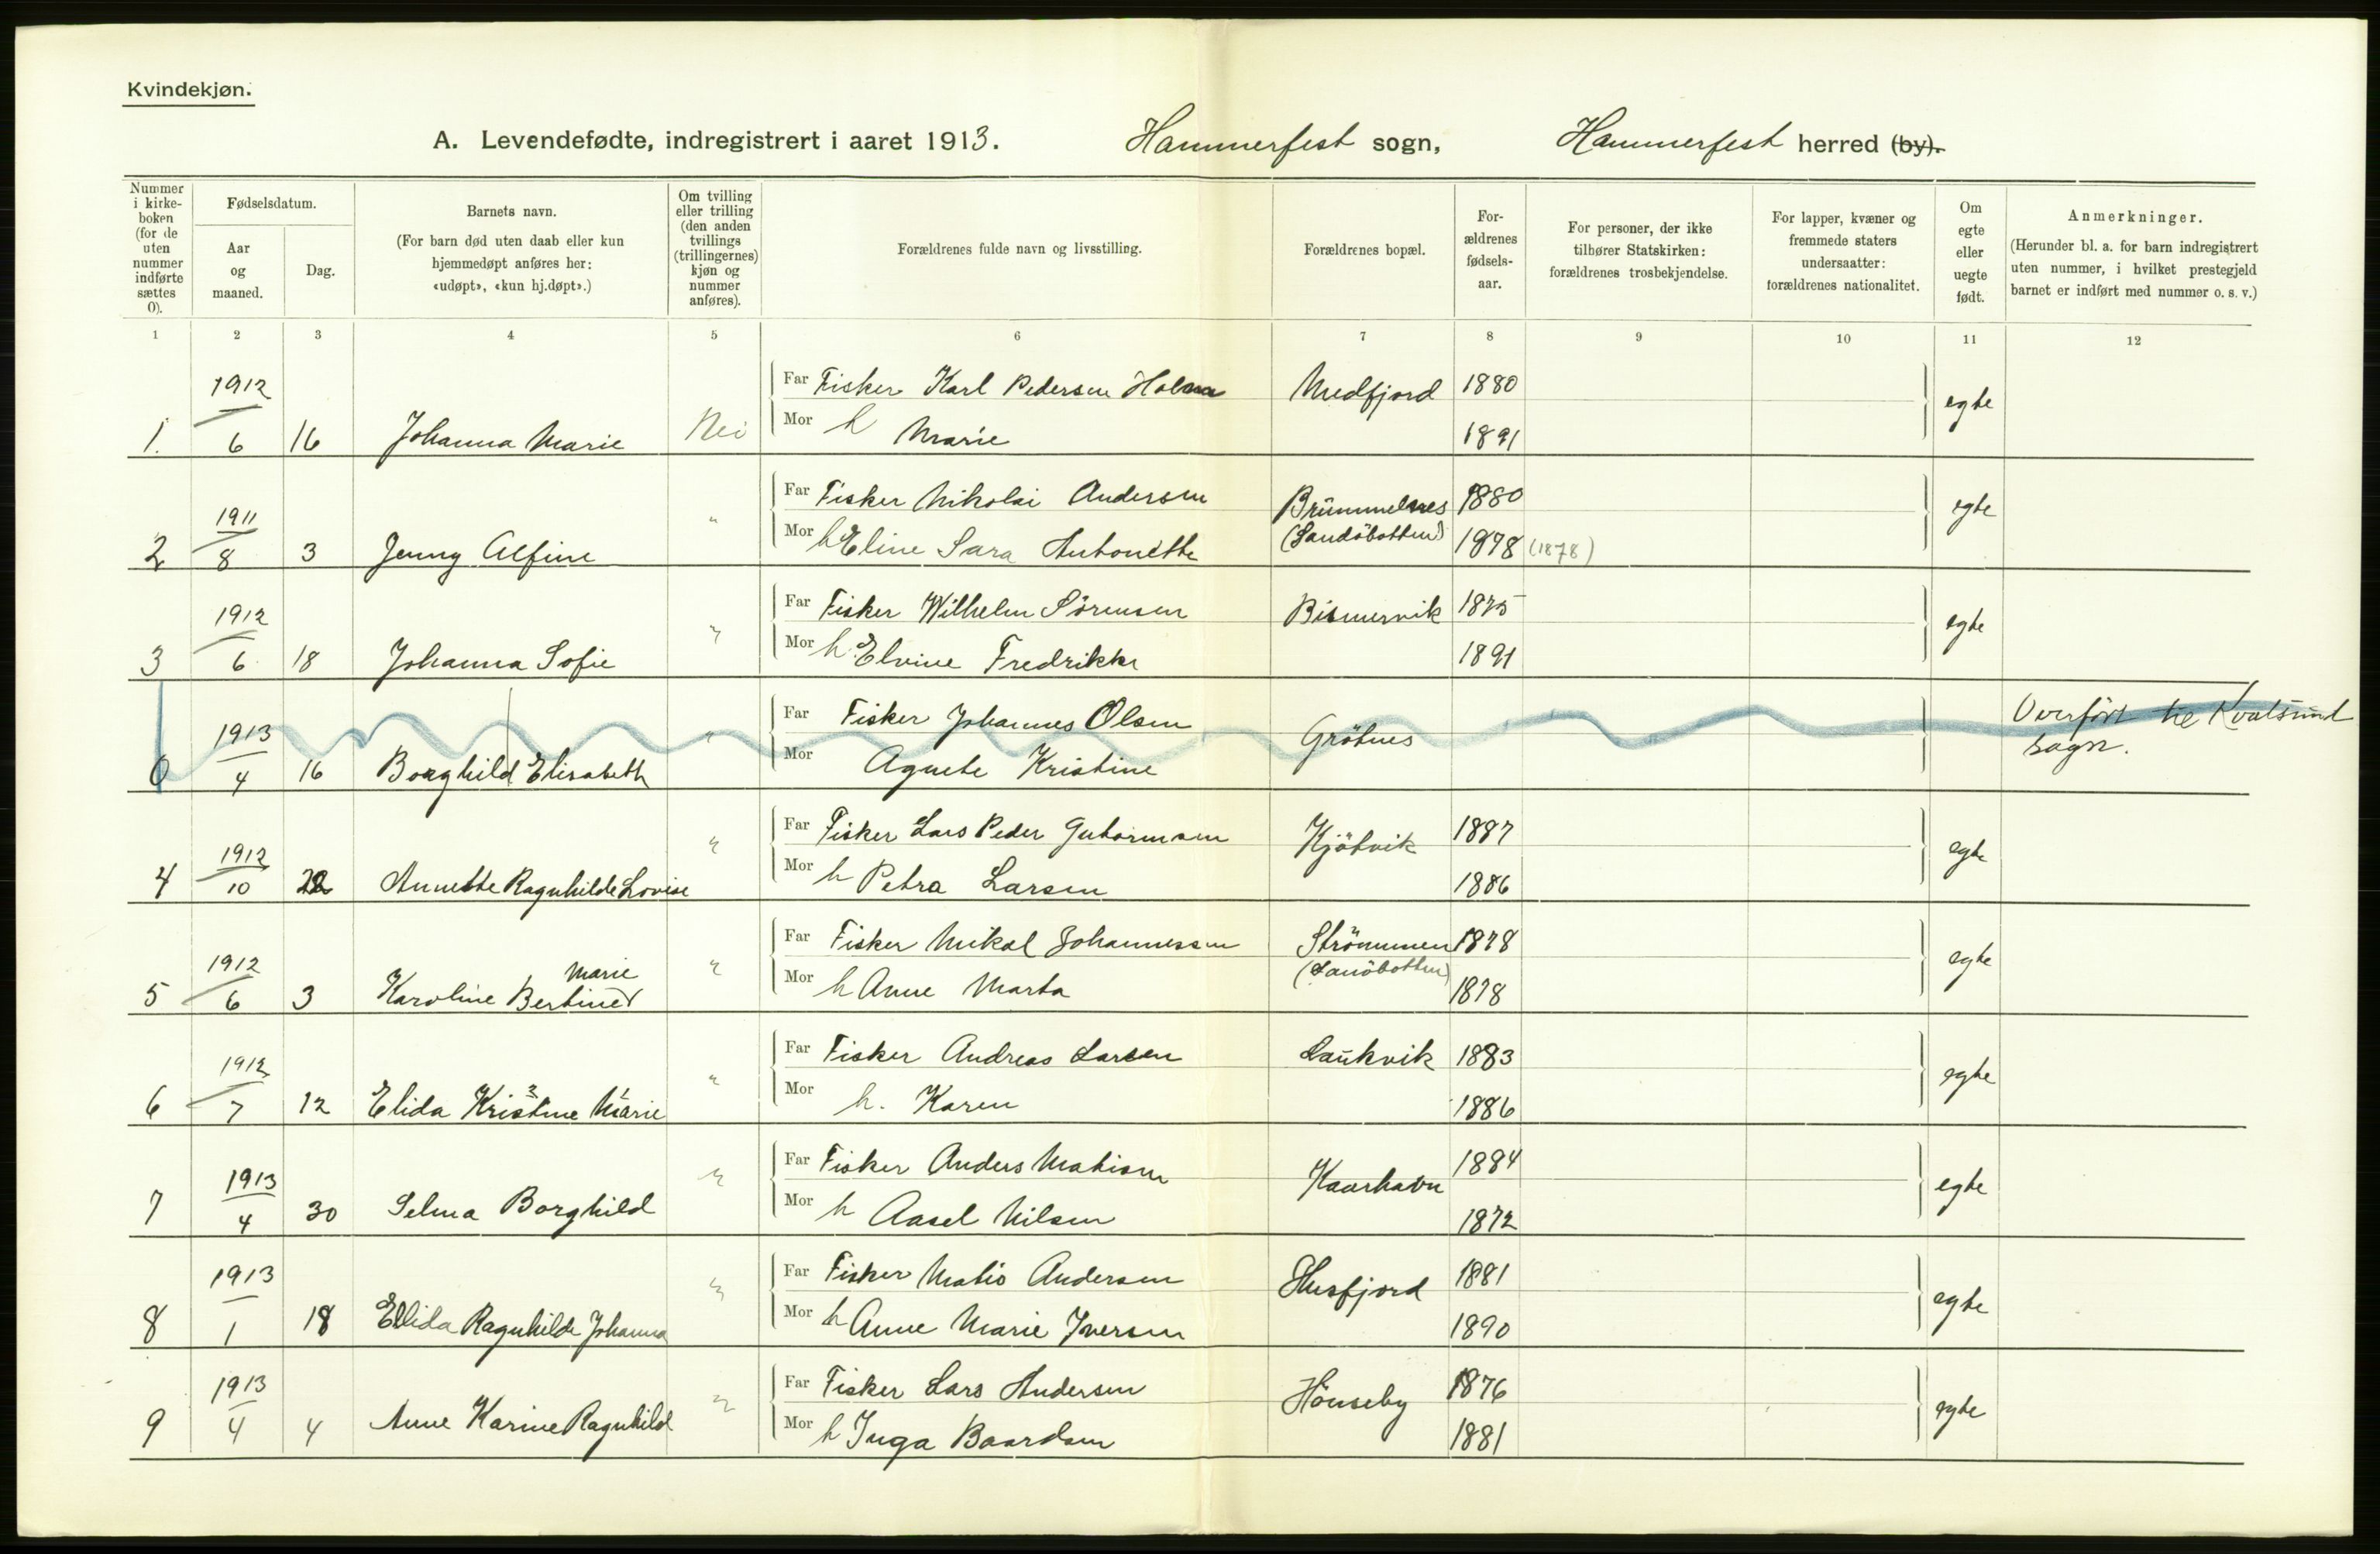 Kvindekjøn.
A. Levendefødte, indregistrert i aaret 1913. Hammerfest sogn, Hammerfest herred (by).
Nummer i kirkeboken (for de uten nummer indførte sættes 0). Fødselsdatum. Aar og maaned. Dag. Barnets navn. (For barn død uten daab eller kun hjemmedøpt anføres her: «udøpt», «kun hj.døpt».) Om tvilling eller trilling (den anden tvillings (trillingernes) kjøn og nummer anføres). Forældrenes fulde navn og livsstilling. Forældrenes bopæl. Forældrenes fødselsaar. For personer, der ikke tilhører Statskirken: forældrenes trosbekjendelse. For lapper, kvæner og fremmede staters undersaatter: forældrenes nationalitet. Om egte eller uegte født. Anmerkninger. (Herunder bl. a. for barn indregistrert uten nummer, i hvilket prestegjeld barnet er indført med nummer o. s. v.)
1 2 3 4 5 6 7 8 9 10 11 12
1912 Far Fisker Karl Pedersen Medfjord 1880 egte
1. 6 16 Johanna Marie Nei Mor h Marie 1891
1911 Far Fisker Nikolai Andersen Brümmelnes 1880 egte
2 8 3 Jenny Alfine " Mor h Eline Sara Antonette (Sandöbotten) 1978 (1878)
1912 Far Fisker Wilhelm Sörensen Bismervik 1875 egte
3 6 18 Johanna Sofie " Mor h. Elvine Fredrikke 1891
1913 Far Fisker Johannes Olsen Grötnes Overfört til Kvalsund
0 4 16 Borghild Elisabeth " Mor Agnete Kristine sogn.
1912 Far Fisker Lars Peder Gutormsen Kjötvik 1887 egte
4 10 22 Annette Ragnhilde Lovise " Mor h Petra Larsen 1886
1912 Marie Far Fisker Mikal Johannessen Strömmen 1878 egte
5 6 3 Karoline Bertine " Mor h Anne Marta (Sanöbotten) 1878
1912 Far Fisker Andreas Larsen Laukvik 1883 egte
6 7 12 Elida Kristine Marie " Mor h. Karen 1886
1913 Far Fisker Anders Matisen Kaarhavn 1884 egte
7 4 30 Selma Borghild " Mor h Aasel Nilsen 1872
1913 Far Fisker Matis Andersen Husfjord 1881 egte
8 1 18 Ellida Ragnhilde Johanna " Mor h Anne Marie Iversen 1890
1913 Far Fisker Lars Andersen Hönseby 1876 egte
9 4 4 Anne Karine Ragnhild " Mor h Inga Baardsen 1881